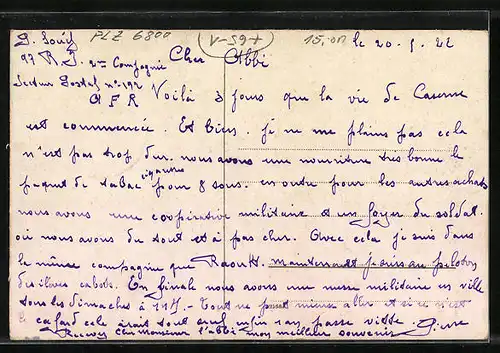 PLZ 6800
15,00
le 20-5.22
2me Compagnie
Secteur Postal n° 192
AFR
Cher Abbi
Voilà 3 jours que la vie de Caserne
est commencée. Et bien. je ne me plains pas cela
n'est pas trop dur. nous avons une nourriture très bonne le
paquet de tabac cigarettes pour 8 sous. en outre pour les autres achats
nous avons une coopérative militaire et un foyer du soldat.
où nous avons du tout et à pas cher. Avec cela je suis dans
la même compagnie que Raoult. maintenant je suis au peloton
des élèves cabots. En finale nous avons une messe militaire en ville
tous les dimaches à 11h - Tout ne peut mieux aller et si ce n'est
le cafard cela irait tout enfin ray passe vite.
Recevez cher monsieur l'abbi mon meilleur souvenir